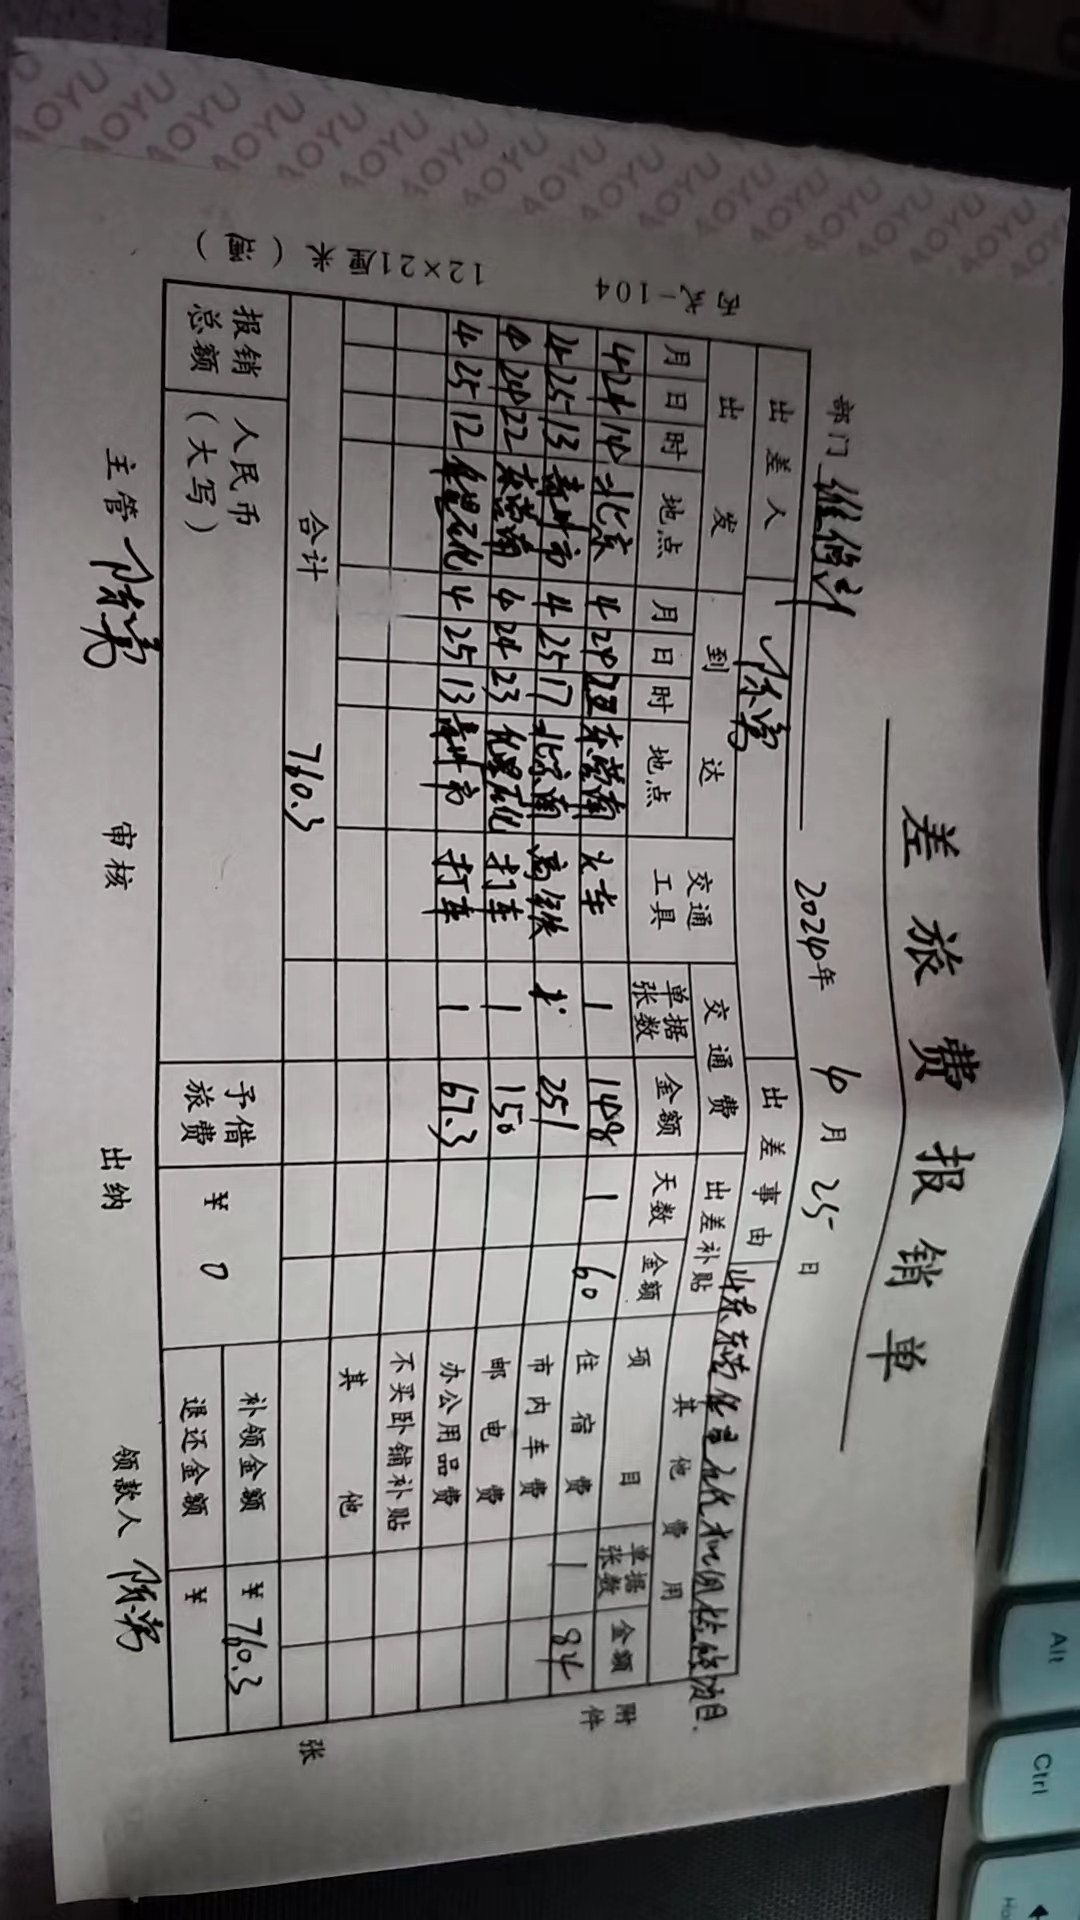 差旅费报销单
部门 维修部 2024年 4月 25日
出差人 陈嵩 出差事由 山东东营
出发 到达 交通工具 交通费 出差补贴 其他费用
月 日 时 地点 月 日 时 地点 单据张数 金额 天数 金额 项目 单据张数 金额
4 24 14 北京 4 24 东营南 火车 1 148 1 60 住宿费 1 84
4 25 13 青州市 4 25 17 北京南 高铁 251 市内车费
4 24 22 东营南 4 24 23 打车 1 150 邮电费
4 25 12 4 25 13 青州市 打车 1 67.3 办公用品费
不买卧铺补贴
其他
合计 760.3
报销总额 人民币(大写) 予借旅费 ¥ 0 补领金额 ¥760.3
退还金额 ¥
主管 陈嵩 审核 出纳 领款人 陈嵩
附件 张
丙式-104 12×21厘米
AOYU AOYU AOYU AOYU AOYU
Alt
Ctrl